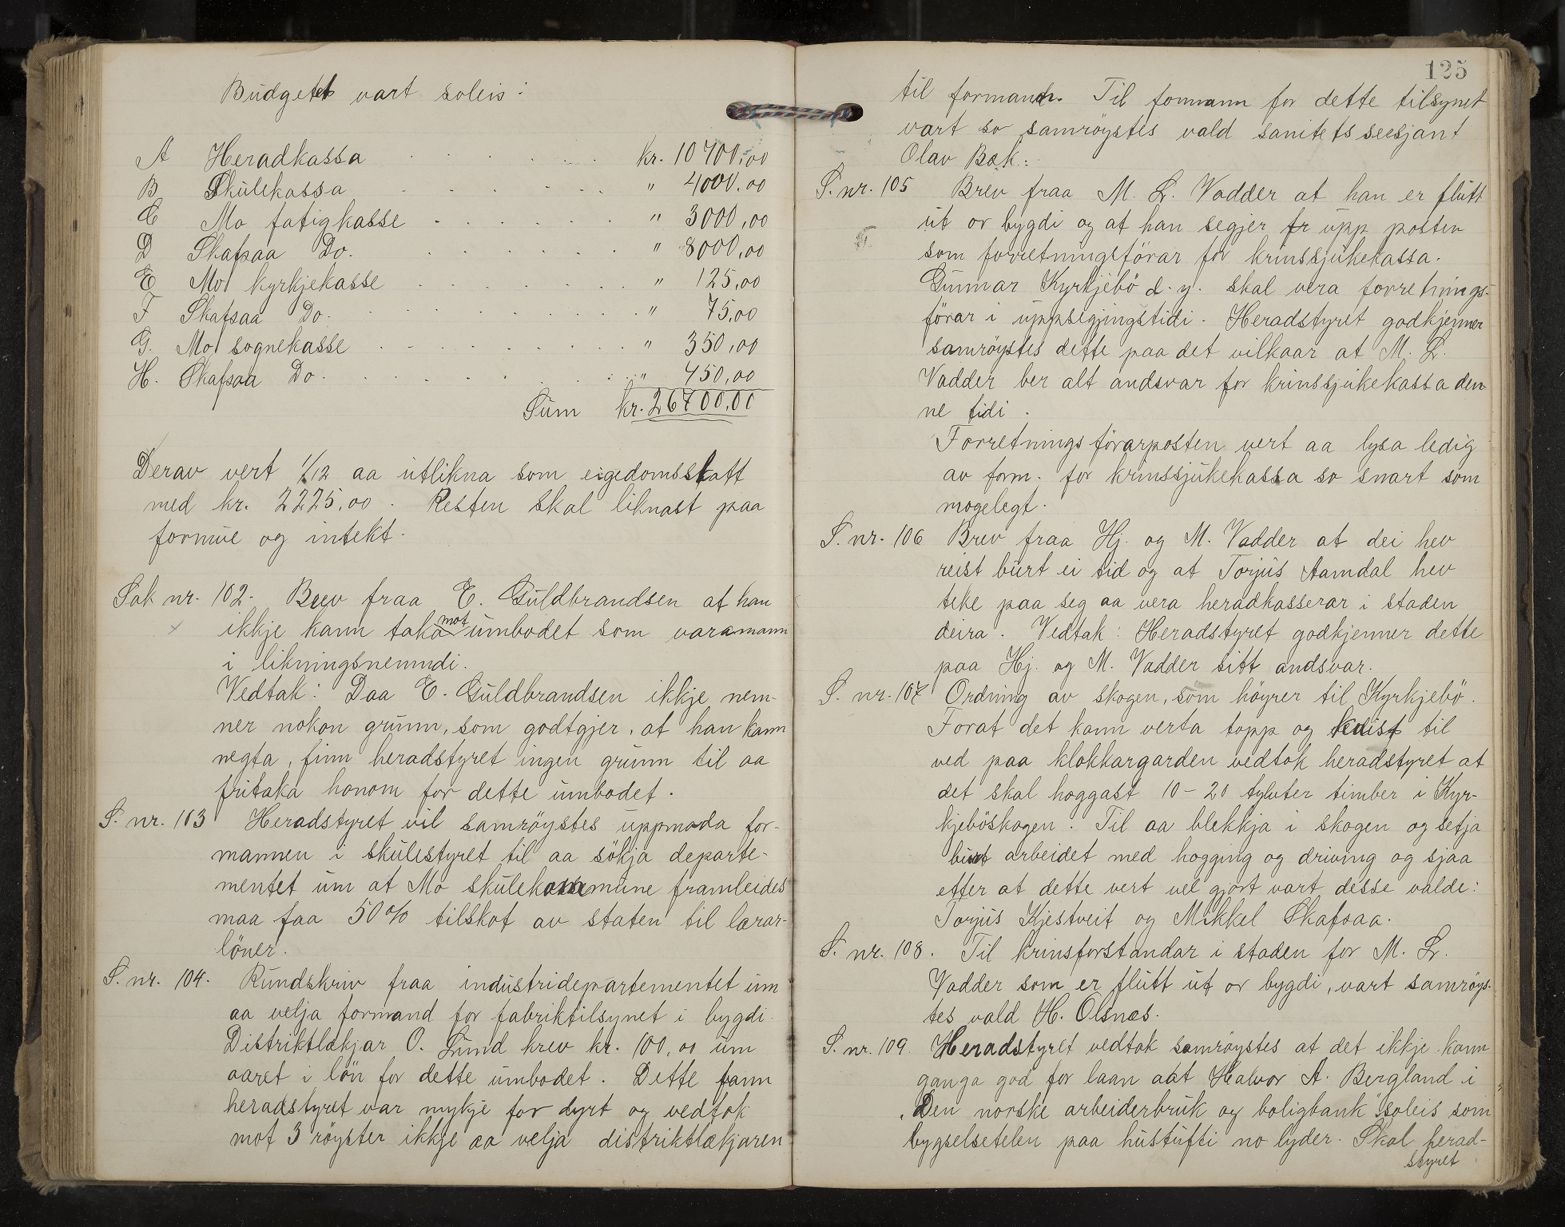 Budgettet vart soleis:
A Heradkassa . . . . . . . kr. 10700,00
B Skulekassa . . . . . . . " 4000,00
C Mo fatigkasse . . . . . . . " 3000,00
D Skafsaa Do. . . . . . . " 8000,00
E Mo kyrkjekasse . . . . . . . " 125,00
F Skafsaa Do. . . . . . . . " 75,00
G. Mo sognekasse . . . . . . . " 350,00
H. Skafsaa Do. . . . . . . . " 450,00
Sum kr. 26700,00
Derav vert 1/12 aa utlikna som eigedomsskatt
med kr. 2225,00. Resten skal liknast paa
formue og intekt.
Sak nr. 102. Brev fraa E. Guldbrandsen at han
ikkje kann taka mot umbodet som varamann
i likningsnemndi.
Vedtak: Daa E. Guldbrandsen ikkje nem-
ner nokon grunn, som godtgjer, at han kann
negta, finn heradstyret ingen grunn til aa
fritaka honom for dette umbodet.
S. nr. 103 Heradstyret vil samröystes uppmoda for-
mannen i skulestyret til aa sökja departe-
mentet um at Mo skulekommune framleides
maa faa 50% tilskot av staten til lærar-
löner.
S. nr. 104. Rundskriv fraa industridepartementet um
aa velja formand for fabriktilsynet i bygdi.
Distriktlækjar O. Lund krev kr. 100,00 um
aaret i lön for dette umbodet. Dette fann
heradstyret var mykje for dyrt og vedtok
mot 3 röyster ikkje aa velja distriktlækjaren
125
til formann. Til formann for dette tilsynet
vart so samröystes vald sanitetssersjant
Olav Bæk.
S. nr. 105 Brev fraa M. L. Vadder at han er flutt
ut or bygdi og at han segjer fr upp posten
som forretningsförar for krinssjukekassa.
Gunnar Kyrkjebö d. y. skal vera forretnings-
förar i uppsegjingstidi. Heradstyret godkjenner
samröystes dette paa det vilkaar at M. L.
Vadder ber alt andsvar for krinssjukekassa den-
ne tidi.
Forretningsförarposten vert aa lysa ledig
av form. for krinssjukekassa so snart som
mogelegt.
S. nr. 106 Brev fraa Hj. og M. Vadder at dei hev
reist burt ei tid og at Torjus Aamdal hev
teke paa seg aa vera heradkasserar i staden
deira. Vedtak: Heradstyret godkjenner dette
paa Hj. og M. Vadder sitt andsvar.
S. nr. 107 Ordning av skogen, som höyrer til Kyrkjebö.
Forat det kann verta topp og kvist til
ved paa klokkargarden vedtok heradstyret at
det skal hoggast 10-20 tylvter timber i Kyr-
kjeböskogen. Til aa blekkja i skogen og setja
burt arbeidet med hogging og driving og sjaa
etter at dette vert vel gjort vart desse valde:
Torjus Kjestveit og Mikkel Skafsaa.
S. nr. 108. Til krinsforstandar i staden for M. L.
Vadder som er flutt ut or bygdi, vart samröys-
tes vald H. Olsnes.
S. nr. 109. Heradstyret vedtok samröystes at det ikkje kann
ganga god for laan aat Halvor A. Bergland i
"Den norske arbeiderbruk og boligbank" soleis som
bygselsetelen paa hustufti no lyder. Skal herad-
styret